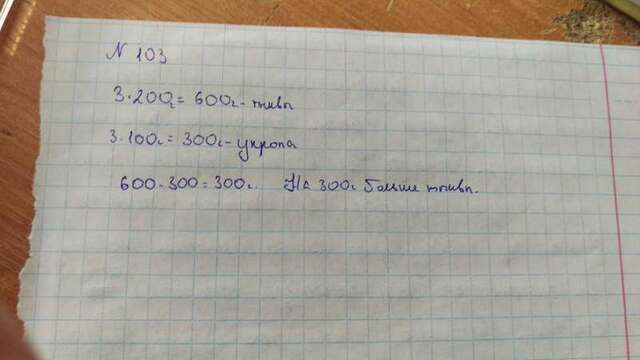 N 103
3·200г = 600г - тмвп
3·100г = 300г - укропа
600-300=300г. На 300г больше тмвп.